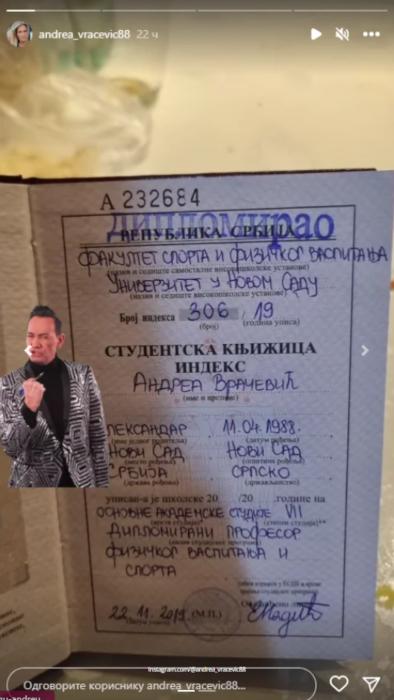 andrea_vracevic88 22 ч
А 232684
ДИПЛОМИРАО
РЕПУБЛИКА СРБИЈА
ФАКУЛТЕТ СПОРТА И ФИЗИЧКОГ ВАСПИТАЊА
(назив и седиште самосталне високошколске установе)
УНИВЕРЗИТЕТ У НОВОМ САДУ
(назив и седиште високошколске установе)
Број индекса 306 / 19
(број) (година уписа)
СТУДЕНТСКА КЊИЖИЦА
ИНДЕКС
АНДРЕА ВРАЧЕВИЋ
(име и презиме)
ЛЕКСАНДАР 11.04.1988.
(име једног родитеља) (датум рођења)
НОВИ САД НОВИ САД
(место рођења) (општина рођења)
СРБИЈА СРПСКО
(држава рођења) (држављанство)
уписан-а је школске 20 /20 године на
ОСНОВНЕ АКАДЕМСКЕ СТУДИЈЕ VII
(врста студија)* (степен студија)**
ДИПЛОМИРАНИ ПРОФЕСОР
ФИЗИЧКОГ ВАСПИТАЊА И
СПОРТА
22.11.2019 (М.П.)
(Датум уписа)
instagram.com/@andrea_vracevic88
Одговорите кориснику andrea_vracevic88...